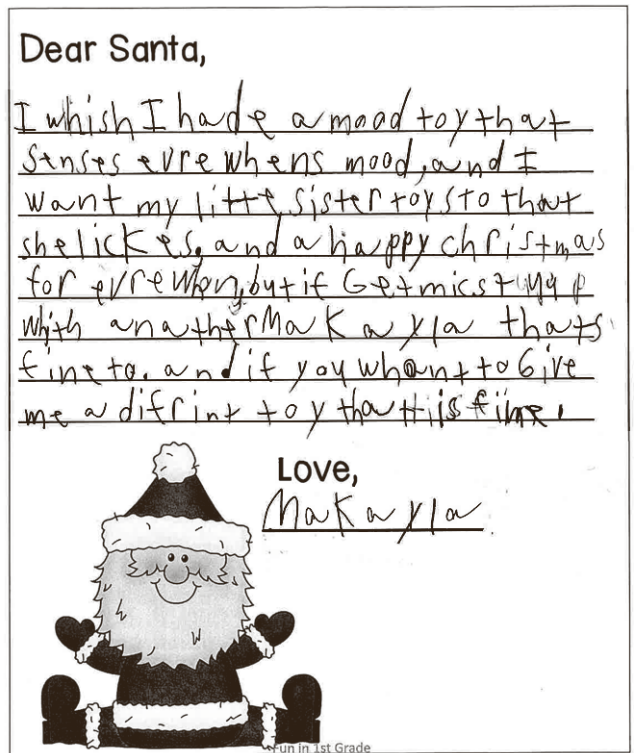 Dear Santa,
I whish I hade a mood toy that
senses evre whens mood, and I
want my litte sister toys to that
she lickes, and a happy christmas
for evre when, but if Get mics
whith anather Makayla thats
fine to. and if you whant to Give
me a difrint toy that is fine.
Love,
Makayla
Fun in 1st Grade